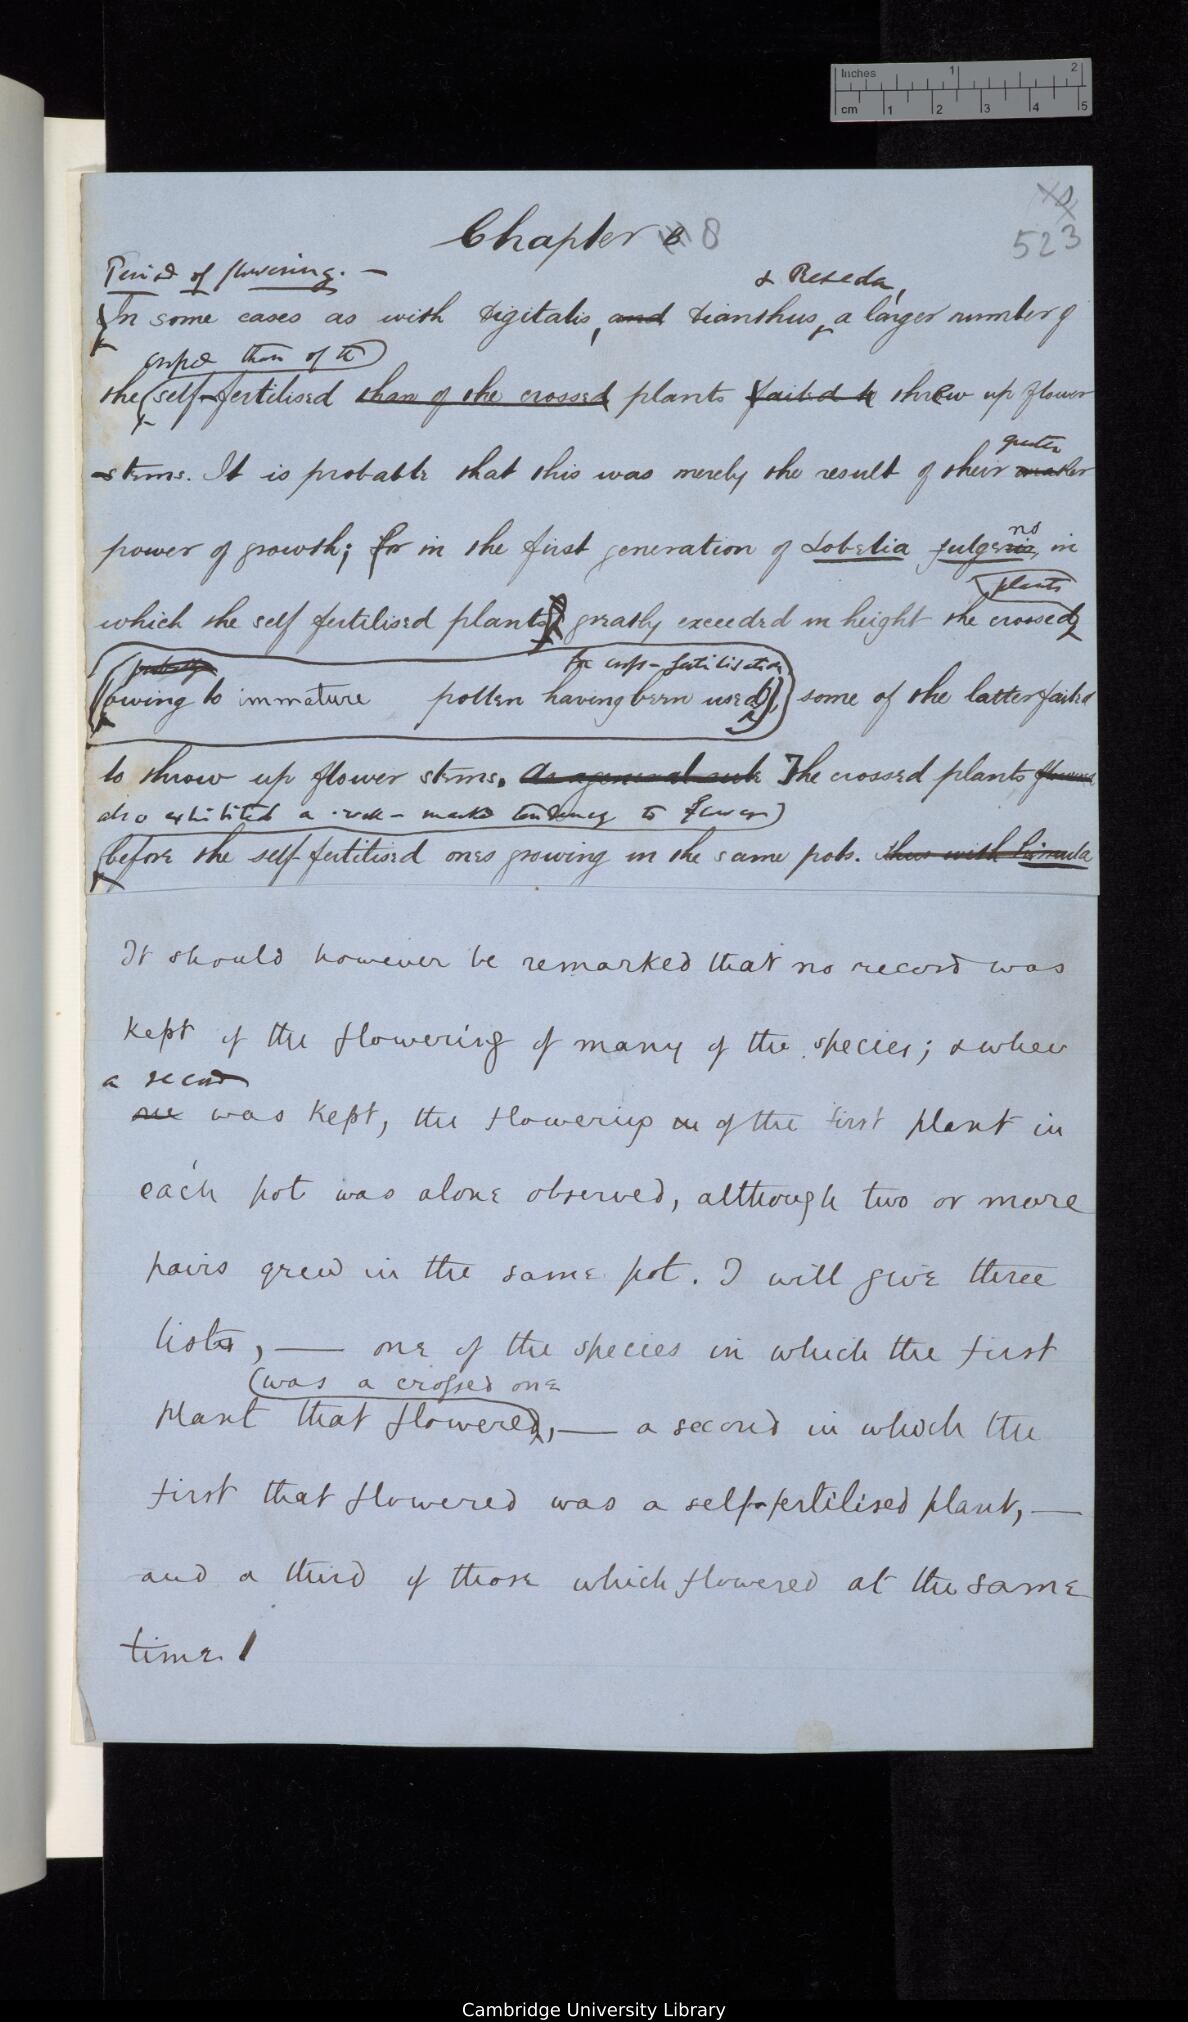 Inches 1 2
cm 1 2 3 4 5
Chapter 8
523
Period of flowering. —
& Reseda,
In some cases as with Digitalis, and Dianthus, a larger number of
crossed than of the
the self-fertilised than of the crossed plants failed to threw up flower
greater
-stems. It is probable that this was merely the result of their
no
power of growth; for in the first generation of Lobelia fulgens, in
plants
which the self fertilised plants greatly exceeded in height the crossed
probably for cross-fertilisation
(owing to immature pollen having been used), some of the latter failed
to throw up flower stems. As a general rule The crossed plants flowered
also exhibited a well-marked tendency to flower
before the self-fertilised ones growing in the same pots. thus with Mimula
It should however be remarked that no record was
kept of the flowering of many of the species; & when
a record
one was kept, the flowering of the first plant in
each pot was alone observed, although two or more
pairs grew in the same pot. I will give three
lists, — one of the species in which the first
(was a crossed one
plant that flowered, — a second in which the
first that flowered was a self-fertilised plant, —
and a third of those which flowered at the same
time.
Cambridge University Library